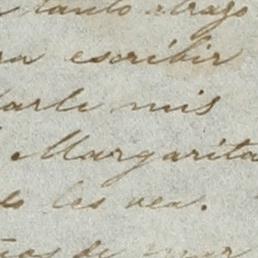 tanto trajo
escribir
darle mis
Margarita
les vea.
de